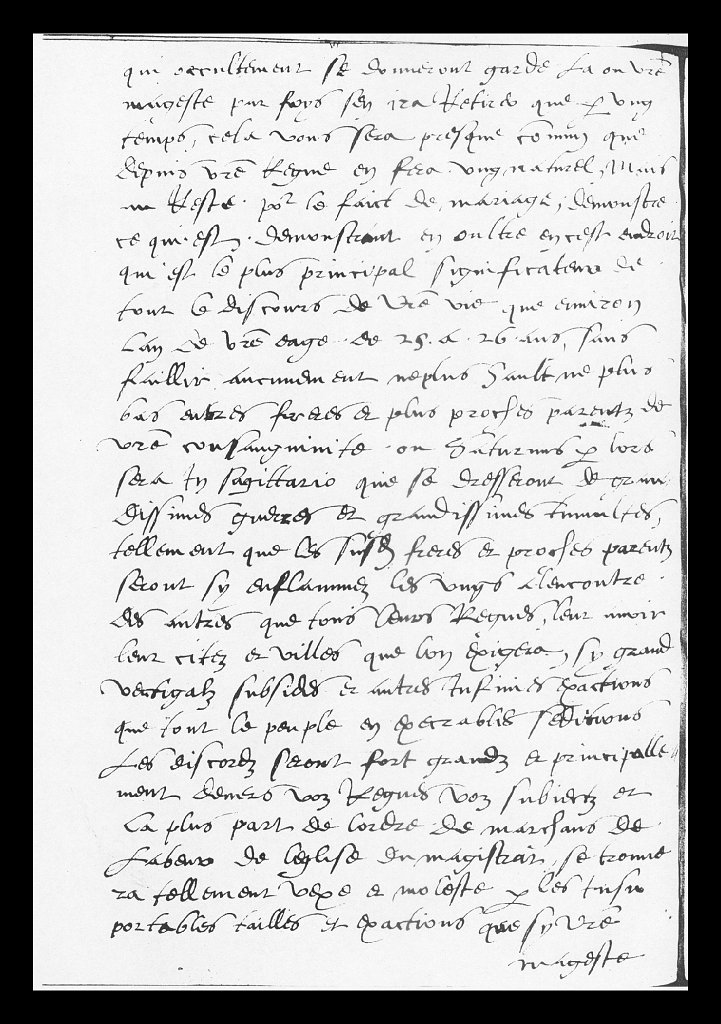 qui occultement se donneront garde La ou vr̃e
mageste par foys sen ira Retirer que p̲ ung
temps, cela vous sera presque commun que
depuis vr̃e Regne en fera ung naturel, Mais
au Reste . po^r le faict de mariage, demonstre
ce qui est, demonstrant en oultre en cest endroit
qui est le plus principal significateur de
tout le discours de vr̃e vie que environ
Lan de vr̃e eage . de 25. a . 26 . ans, sans
faillir aucunement ne plus hault ne plus
bas entres freres et plus proches parentz de
vr̃e consanguinite . ou Saturnus p̲ lors
sera In sagittario que se dresseront de gran
dissimes guerres et grandissimes tumultes,
tellement que les susd freres et proches parentz
seront sy enflammez les ungs a lencontre
des autres que tous leurs Regnes, leur avoir
leur citez et villes que lon exigera, sy grand
vectigalz subsides et autres Infinies exactions
que tout le peuple en execrables seditions
Les discordz seront fort grandz et principalle
ment devers voz Regnes voz subiectz et
La plus part de lordre de marchans de
Labeur de leglise du magistrat, se trouve
ra tellement vexe et moleste p̲ les Insu
portables tailles et exactions que sy vr̃e
mageste